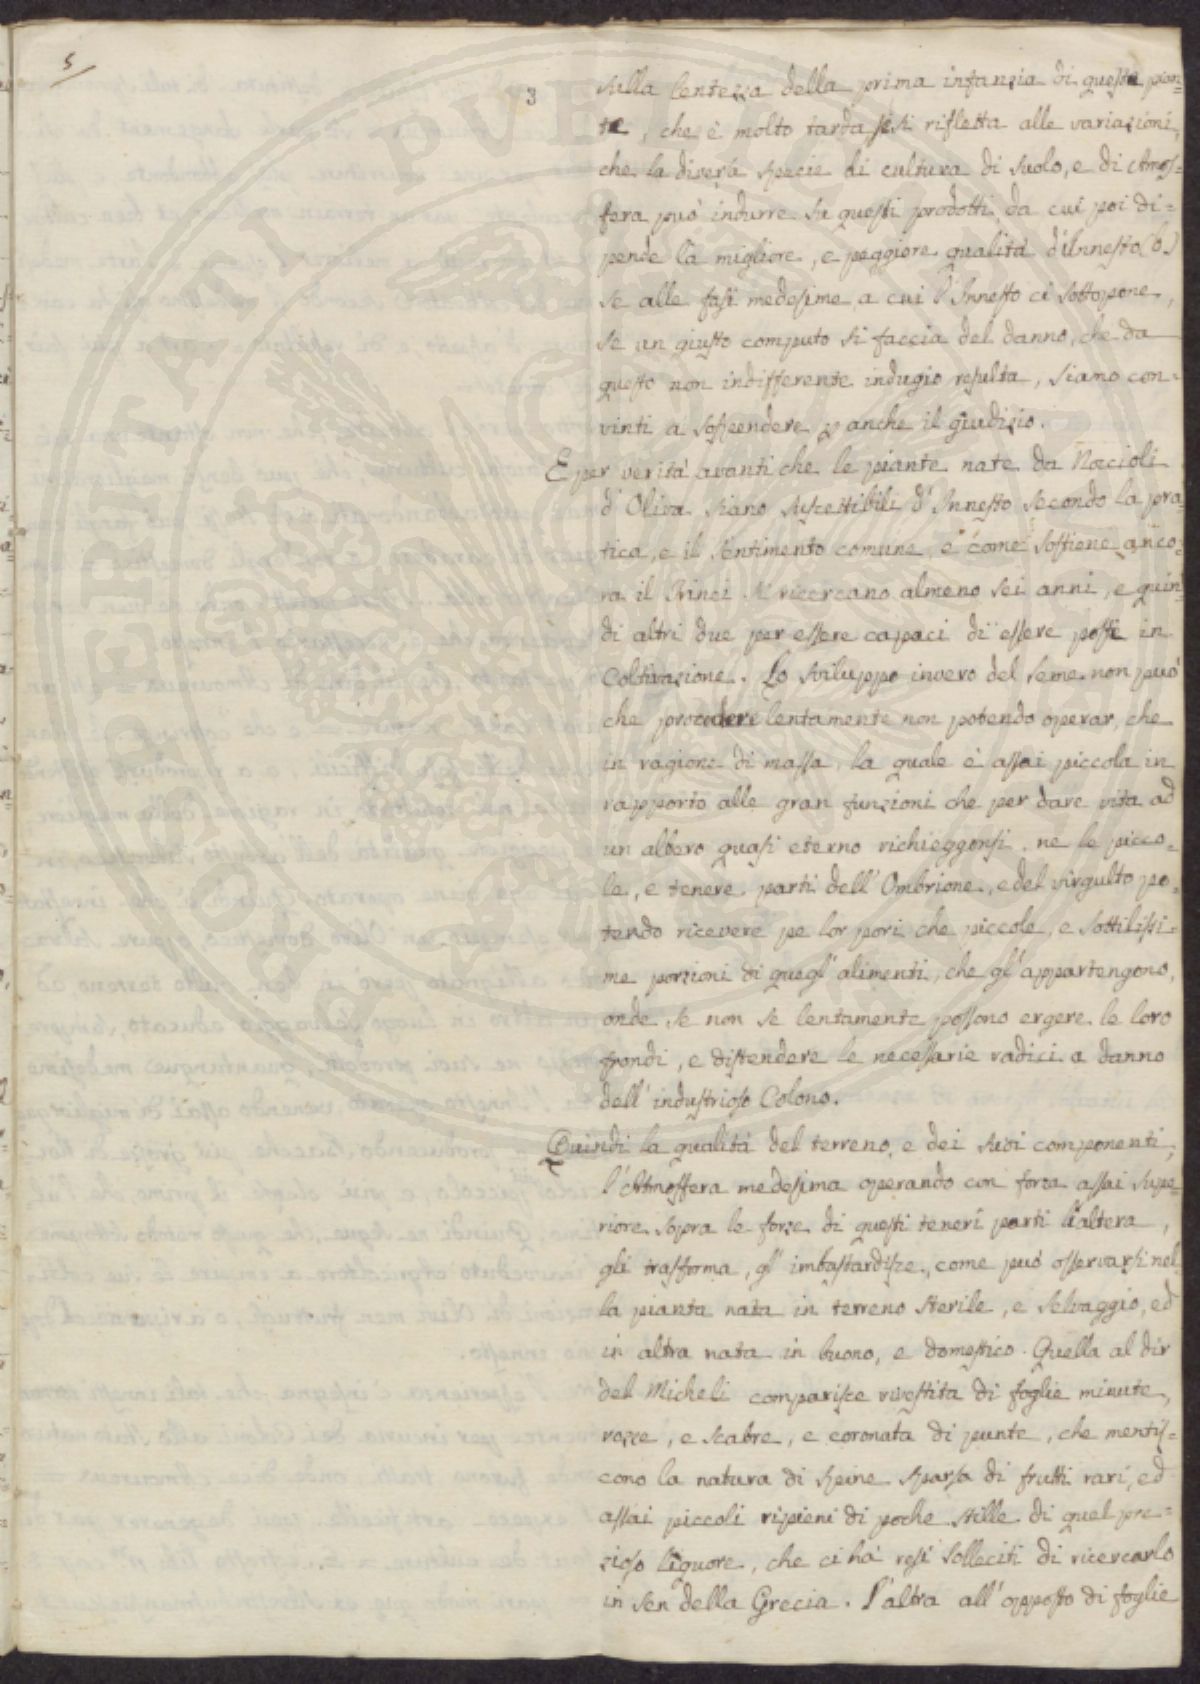 5
3
sulla lentezza della prima infanzia di queste pian-
te, che è molto tarda, se si rifletta alle variazioni,
che la diversa specie di cultura di suolo, e di Atmos-
fera può indurre su questi prodotti, da cui poi di=
pende la migliore, e peggiore qualità d'Innesto (b)
se alle fasi medesime, a cui l'Innesto ci sottopone,
se un giusto computo si faccia del danno, che da
questo non indifferente indugio resulta, siamo con-
vinti a sospendere p anche il giudizio.
E per verità avanti che le piante nate da Noccioli
d'Oliva siano suscettibili d'Innesto secondo la pra-
tica, e il sentimento comune, e come sostiene anco-
ra il Trinci si ricercano almeno sei anni, e quin-
di altri due per essere capaci di essere posti in
Coltivazione. Lo sviluppo invero del seme non può
che procedere lentamente non potendo operar, che
in ragione di massa, la quale è assai piccola in
rapporto alle gran funzioni che per dare vita ad
un albero quasi eterno richieggonsi. ne le picco-
le, e tenere parti dell'Ombrione, e del virgulto po-
tendo ricevere pe lor pori che piccole, e sottilissi-
me porzioni di quegl'alimenti, che gl'appartengono,
onde se non se lentamente possono ergere le loro
frondi, e distendere le necessarie radici a danno
dell'industrioso Colono.
Quindi la qualità del terreno, e dei suoi componenti,
l'Atmosfera medesima operando con forza assai supe-
riore sopra le forze di questi teneri parti l'altera,
gli trasforma, gl'imbastardisce, come può osservarsi nel
la pianta nata in terreno sterile, e selvaggio, ed
in altra nata in buono, e domestico. Quella al dir
del Micheli comparisce vivestita di foglie minute,
rozze, e scabre, e coronata di punte, che mentis-
cono la natura di spine sparsa di frutti rari, ed
assai piccoli ripieni di poche stille di quel pre=
zioso liquore, che ci hà resi solleciti di ricercarlo
in sen della Grecia. l'altra all'opposto di foglie